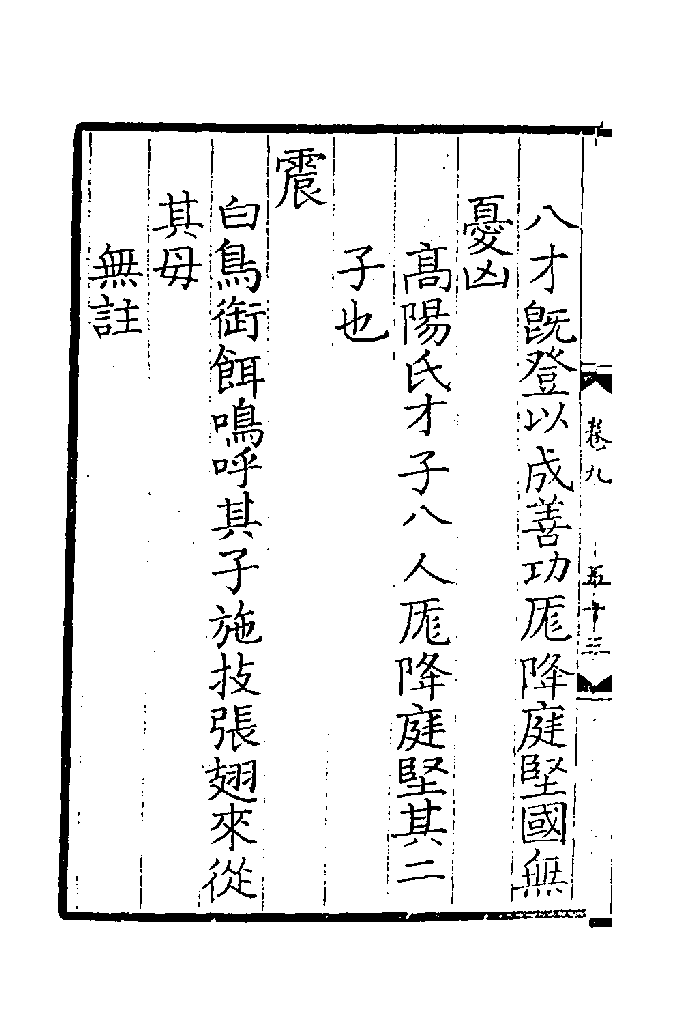 八才旣登以成善功厖降庭堅國無
憂凶
髙陽氏才子八人厖降庭堅其二
子也
震
白鳥銜餌鳴呼其子施技張翅來從
其母
無註
卷九
五十三